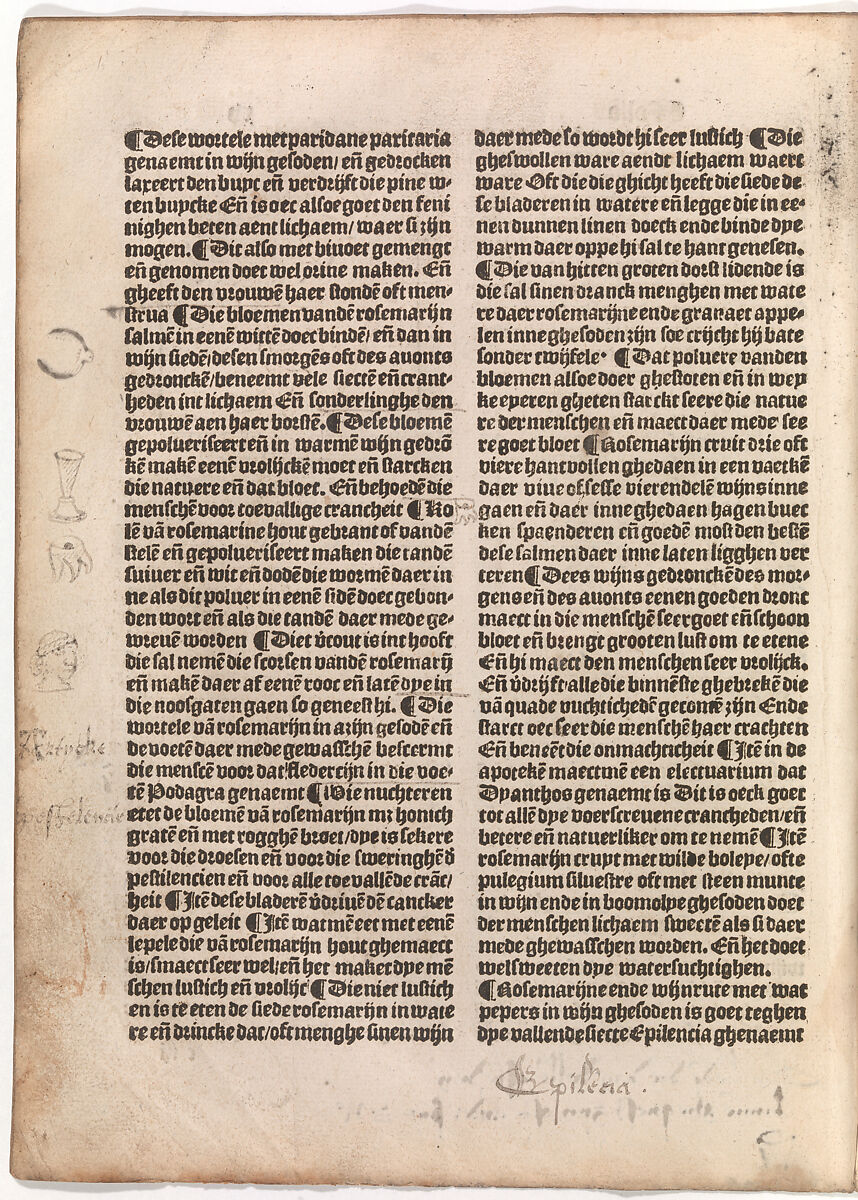 ¶Dese wortele met paridane paritaria
genaemt in wijn gesoden/ en̄ gedrocken
laxeert den buyc en̄ verdrijft die pine w-
ten buycke En̄ is oec alsoe goet den feni
nighen beten aent lichaem/ waer si zijn
mogen.¶Dit also met bivoet gemengt
en̄ genomen doet wel orine maken. En̄
gheeft den vrouwē haer stondē oft men-
strua ¶Die bloemen vandē rosemarijn
salmē in eenē wittē doec bindē/ en̄ dan in
wijn siedē/ desen smorgēs oft des avonts
gedronckē/ beneemt vele siectē en̄ crant-
heden int lichaem En̄ sonderlinghe den
vrouwē aen haer borstē.¶Dese bloemē
gepolueriseert en̄ in warmē wijn gedrō
kē makē eenē vrolijckē moet en̄ starcken
die natuere en̄ dat bloet. En̄ behoedē die
menschē voor toevallige crancheit ¶Ko
lē vā rosemarine hout gebrant of vandē
stelē en̄ gepolueriseert maken die tandē
suiver en̄ wit en̄ dodē die wormē daer in
ne als dit poluer in eenē sidē doec gebon-
den wort en̄ als die tandē daer mede ge-
wreuē worden ¶Diet v̄cout is int hooft
die sal nemē die scorsen vandē rosemarij̄
en̄ makē daer af eenē rooc en̄ latē dye in
die noosgaten gaen so geneest hi. ¶Die
wortele vā rosemarijn in azijn gesodē en̄
de voetē daer mede gewasschē beschermt
die menscē voor dat fledercijn in die voe-
tē Podagra genaemt ¶Die nuchteren
etet de bloemē vā rosemarijn mz honich
gratē en̄ met rogghē broet/ dye is sekere
voor die droesen en̄ voor die sweringhē d̄
pestilencien en̄ voor alle toevallēde crāc/
heit ¶Itē dese bladerē v̄drivē dē cancker
daer op geleit ¶Itē wat mē eet met eenē
lepele die vā rosemarijn hout ghemaect
is/ smaect seer wel/ en̄ het maket dye mē
schen lustich en̄ vrolijc ¶Die niet lustich
en is te eten de siede rosemarijn in wate
re en̄ drincke dat/ oft menghe sinen wijn
daer mede so wordt hi seer lustich ¶Die
gheswollen ware aendt lichaem waert
ware Oft die die ghicht heeft die siede de-
se bladeren in watere en̄ legge die in ee-
nen dunnen linen doeck ende binde dye
warm daer oppe hi sal te hant genesen.
¶Die van hitten groten dorst lidende is
die sal sinen dranck menghen met wate
re daer rosemarijne ende granaet appe-
len inne ghesoden zijn soe crijcht hij bate
sonder twijfele. ¶Dat poluere vanden
bloemen alsoe doer ghestoten en̄ in wey
ke eyeren gheten starckt seere die natue
re der menschen en̄ maect daer mede see
re goet bloet ¶Rosemarijn cruit drie oft
viere hantvollen ghedaen in een vaetkē
daer vive of sesse vierendelē wijns inne
gaen en̄ daer inne ghedaen hagen buec
ken spaenderen en̄ goedē most den bestē
dese salmen daer inne laten ligghen ver
teren ¶Dees wijns gedronckē des mor-
gens en̄ des avonts eenen goeden dronc
maect in die menschē seer goet en̄ schoon
bloet en̄ brengt grooten lust om te etene
En̄ hi maect den menschen seer vrolijck.
En̄ v̄drijft alle die binnēste ghebrekē die
vā quade vuchtichedē gecomē zijn Ende
starct oec seer die menschē haer crachten
En̄ beneēt die onmachticheit ¶Itē in de
apotekē maectmē een electuarium dat
Dyanthos genaemt is Dit is oeck goet
tot allē dye voerscrevene crancheden/ en̄
betere en̄ natuerliker om te nemē ¶Itē
rosemarijn cruyt met wilde boleye/ ofte
pulegium silvestre oft met steen munte
in wijn ende in boomolye ghesoden doet
der menschen lichaem sweetē als si daer
mede ghewasschen worden. En̄ het doet
wel sweeten dye watersuchtighen.
¶Rosemarijne ende wijnrute met wat
pepers in wijn ghesoden is goet teghen
dye vallende siecte Epilencia ghenaemt
pestelencie
Epilencia.